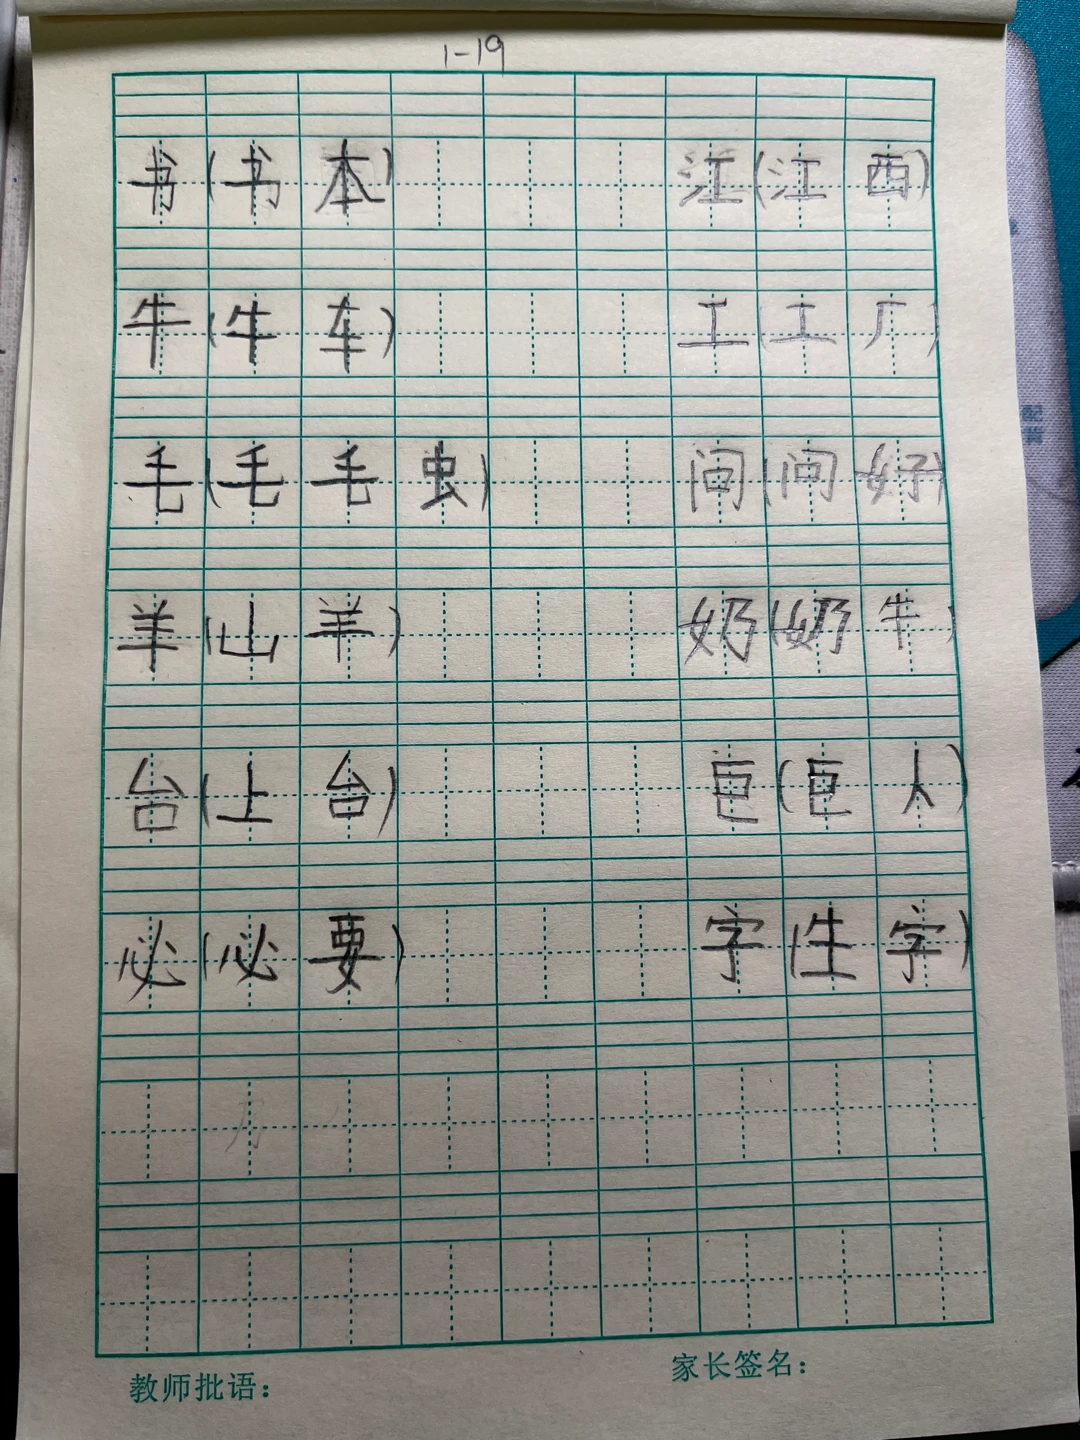 1-19
书(书本) 江(江西)
牛(牛车) 工(工厂)
毛(毛毛虫) 问(问好)
羊(山羊) 奶(奶牛)
台(上台) 巨(巨人)
必(必要) 字(生字)
教师批语： 家长签名：